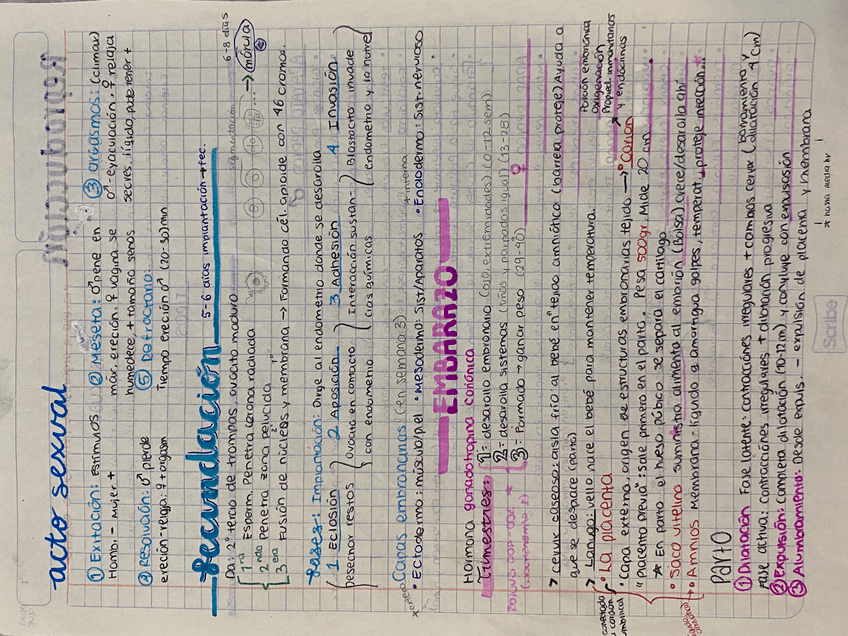 acto sexual
① Exitación: Estimulos
Homb. - Mujer +
② Meseta: ♂ pene en
max. ereción. ♀ vagina se
humedece, + tamaño senos
③ orgasmos: (climax)
♂ - eyaculación. ♀ relaja
secres. líquida, pude tener +
④ Resolución: ♂ pierde
ereción - relaja. ♀ + orgasm
⑤
Tiempo ereción ♂ (20-30) min
Fecundación
5-6 días implantación → fec.
6-8 días
Da: 2° tecio de trompas, ovocito maduro
segmentación
1ra Esperm. Penetra corona radiada
2nda Penetra zona pelucida
→ mórula
3era Fusión de núcleos y membrana → Formando cél. diploide con 46 cromos.
Fases: Implantación: Dirge al endometro donde se desarrolla
1. Eclosión
desechar restos
2. Aposición
Ovocito en contacto
con endometrio
3. Adhesión
Interacción sustan-
cias químicas
4. Invasión
Blastocito invade
endometrio y lo nutre
Capas embrionarias (En semana 3)
+ interna
• Ectodermo: músculo/piel • Mesodermo: Sist/Aparatos • Endodermo: Sist. nervioso
EMBARAZO
Hormona gonadotropina coriónica
Trimestres:
1: desarollo embrionario (ojo, extremidades) (0-12 sem)
2: desarolla sistemas (uños y parpados igual) (13-28)
3: Formado → ganar peso (29-40)
> cervix caseoso: aisla frío al bebé en tejido amniótico (barrera, proteje) Ayuda a
que se despare (parto)
> Lanugo: vello nace el bebé para mantener temperatura.
• La placenta
• Capa externa, origen de estructuras embrionarias, tejido → "Corion"
Porción embrionaria
oxigenación
Propied. inmunitarias
y endócrinas
"Placenta previa": sale primero en el parto. Pesa 500gr. Mide 20 cm
★ En parto el hueso púbico se separa el cartílago
conectada
a cordón
umbilical
• Saco vitelino suministra alimenta al embrión (Bolsa) crece/desarolla ahí
• Amnios Membrana - líquido a amortigua golpes, temperat., proteje infección...
PARTO
① Dilatación Fase latente: contracciónes irregulares + cambios cervix (borramiento y
Fase activa: contracciónes irregulares + dilatación progresiva (dilatación 4 cm)
② Expulsión: completa dilatación (10-12m) y concluye con expulsación
③ Alumbramiento: Desde expuls. - expulsión de placenta y membrana
Scribe